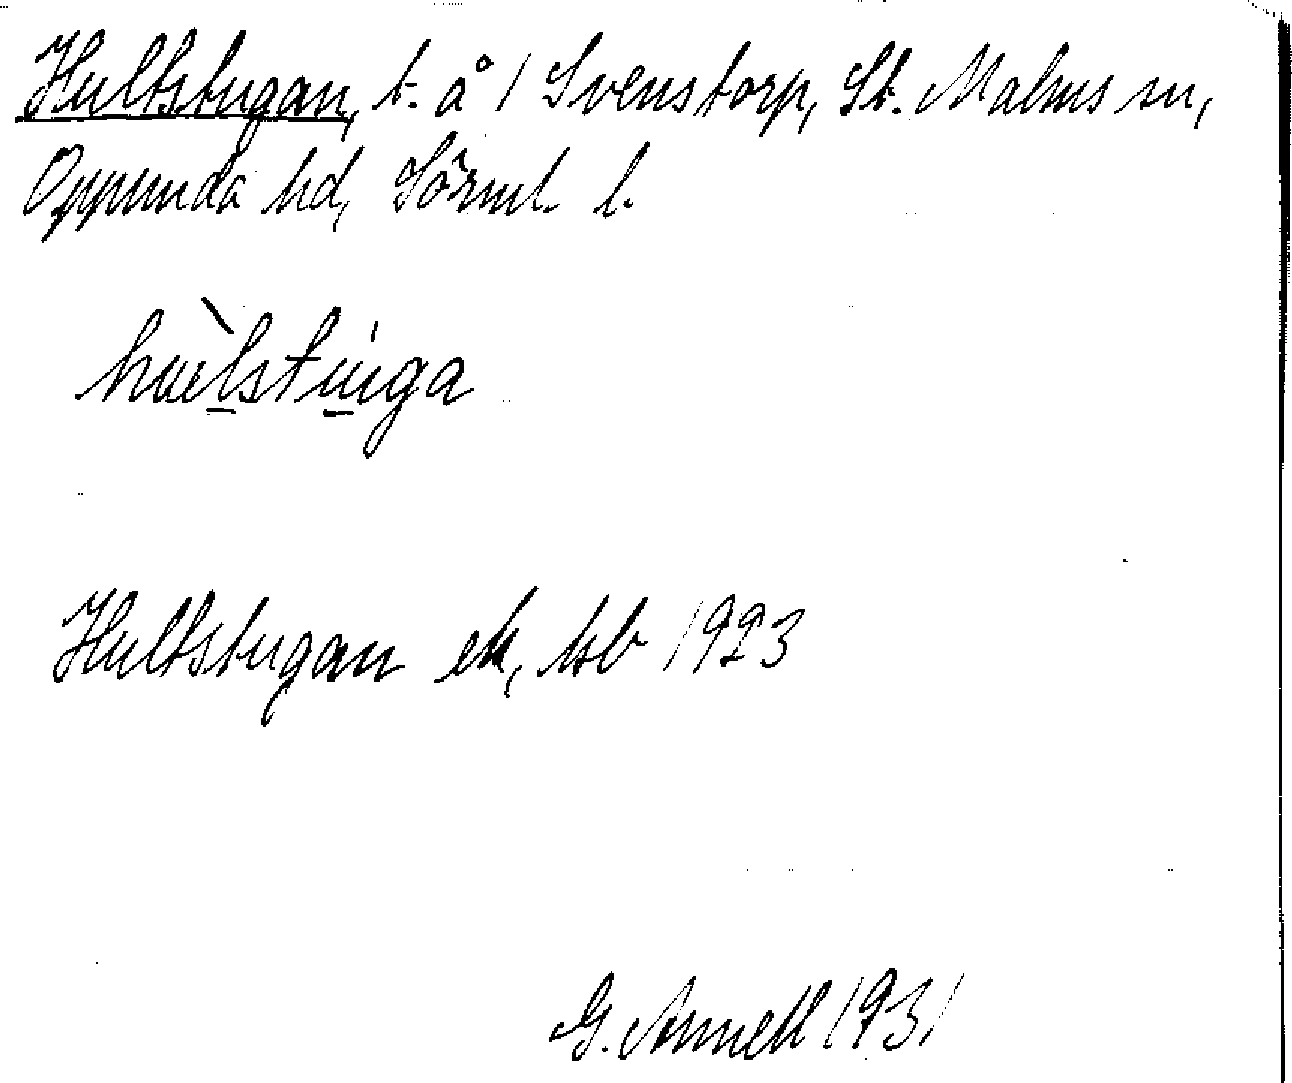 Hultstugan, t. å 1 Svenstorp, St. Malms sn,
Oppunda hd, Sörml. l.
Hultstugan ek, kb 1923
G. Annell 1931